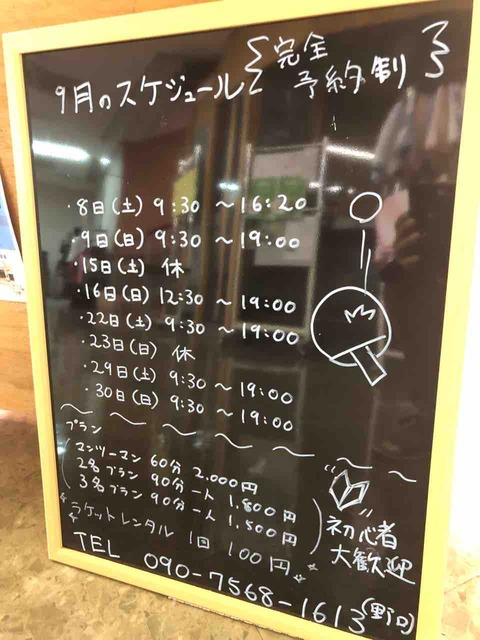 9月のスケジュール{完全予約制}
・8日(土) 9:30 ～16:20
・9日(日) 9:30 ～19:00
・15日(土) 休
・16日(日) 12:30 ～19:00
・22日(土) 9:30 ～19:00
・23日(日) 休
・29日(土) 9:30 ～19:00
・30日(日) 9:30 ～19:00
プラン
マンツーマン 60分 2,000円
2名プラン 90分 一人 1,800円
3名プラン 90分 一人 1,500円
ラケットレンタル 1回 100円
初心者
大歓迎
TEL 090-7568-1613(野口)